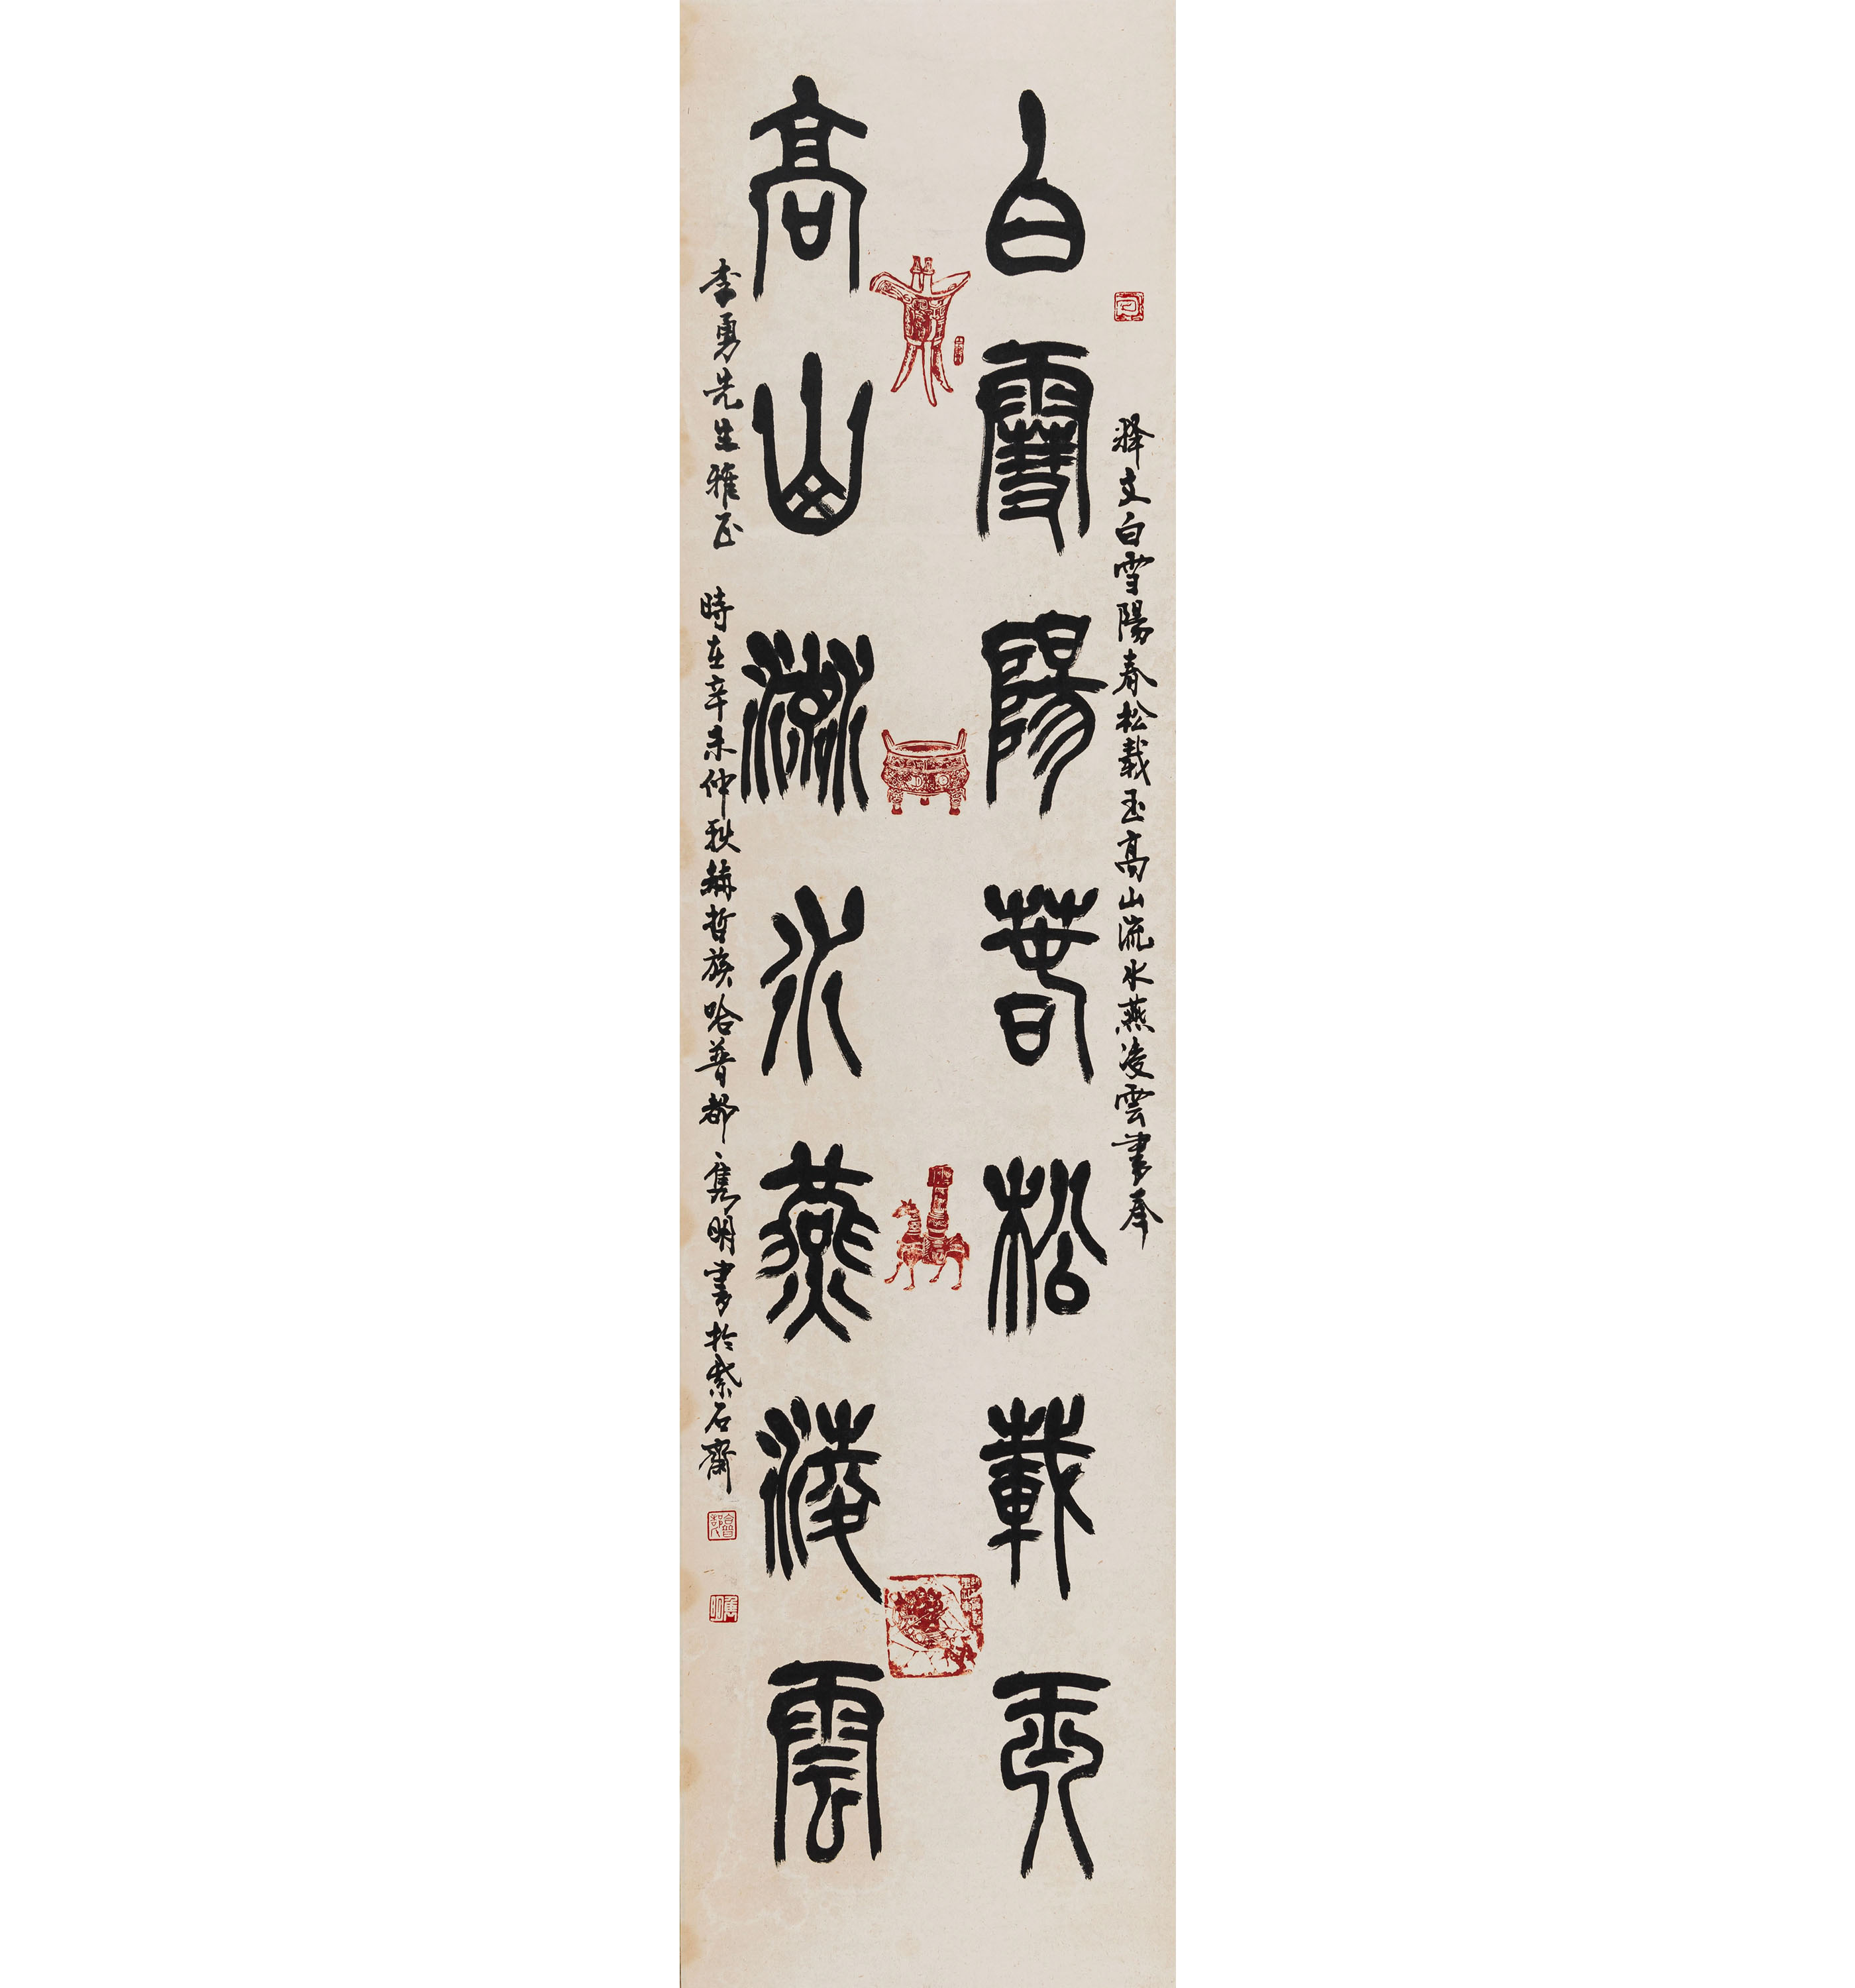 白雪陽春松載玉
高山流水燕凌雲
釋文白雪陽春松載玉高山流水燕凌雲書奉
李勇先生雅正 時在辛未仲秋赫哲族哈普都雋明書於紫石齋
哈普都
雋明